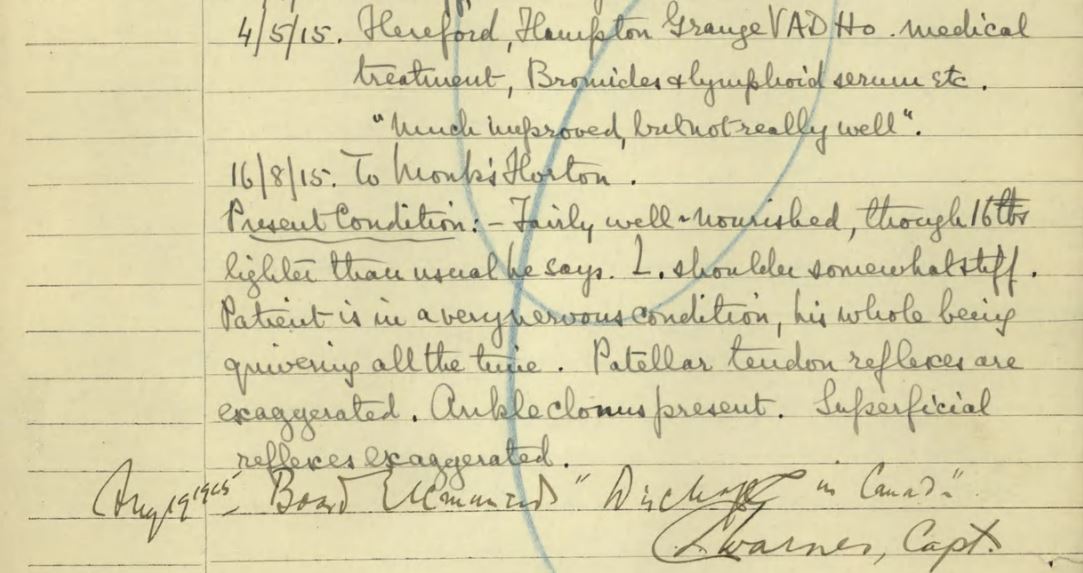 4/5/15. Hereford, Hampton Grange VAD Ho. medical
treatment, Bromides & lymphoid serum etc.
"Much improved, but not really well".
16/8/15. To Monks Horton.
Present Condition:- Fairly well-nourished, though 16 lbs
lighter than usual he says. L. shoulder somewhat stiff.
Patient is in a very nervous condition, his whole being
quivering all the time. Patellar tendon reflexes are
exaggerated. Ankle clonus present. Superficial
reflexes exaggerated.
Aug 19 1915 Board "Discharge in Canada"
Capt.